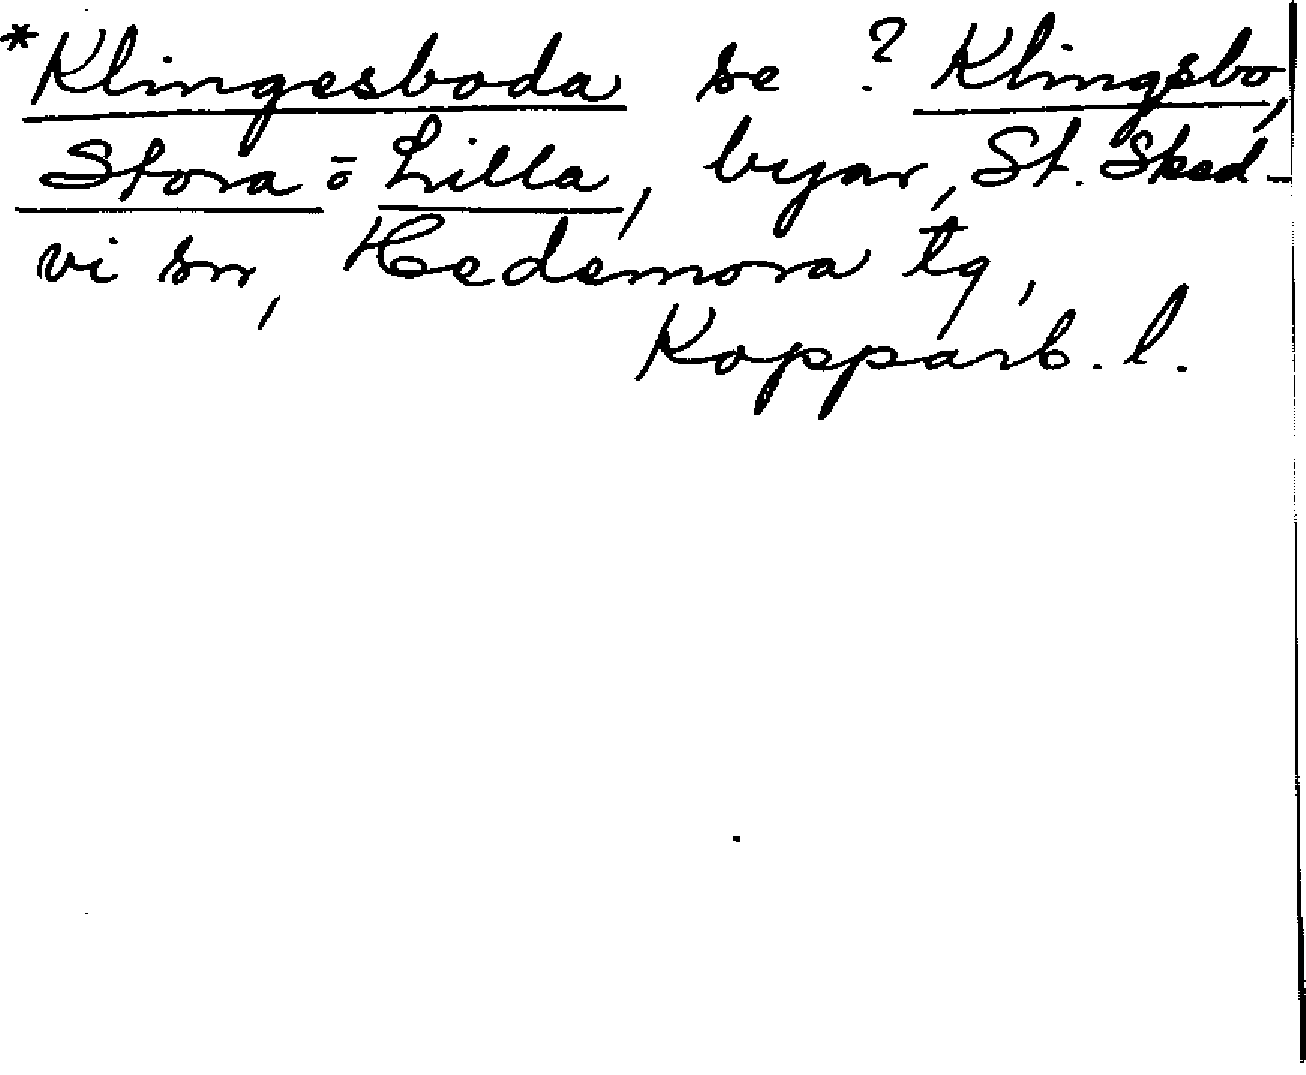 *Klingesboda se ? Klingsbo,
Stora ō Lilla, byar, St. Sked-
vi sn, Hedemora tg,
Kopparb. l.